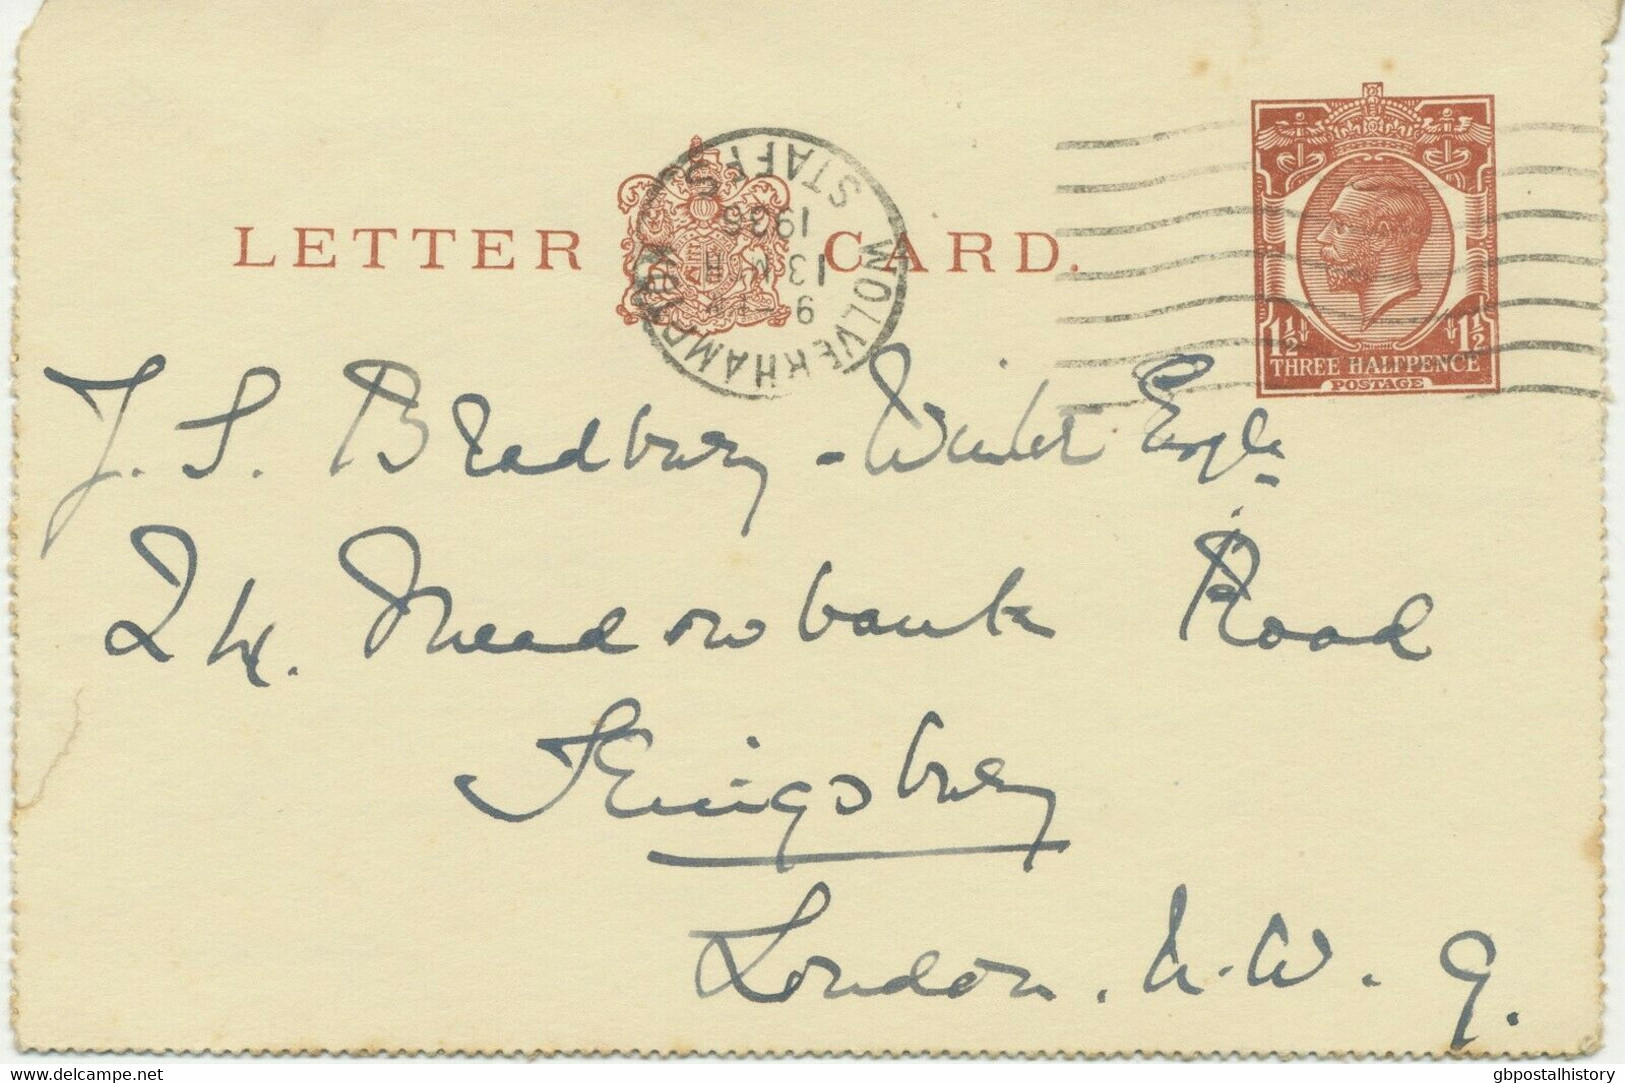 LETTER CARD.
WOLVERHAMPTON
STAFFS
1936
13
9
1½ 1½
THREE HALFPENCE
POSTAGE
J. S. Bradbury-Winter Esq
24. Meadowbank Road
Kingsbury
London. N.W. 9.
delcampe.net
gbpostalhistory